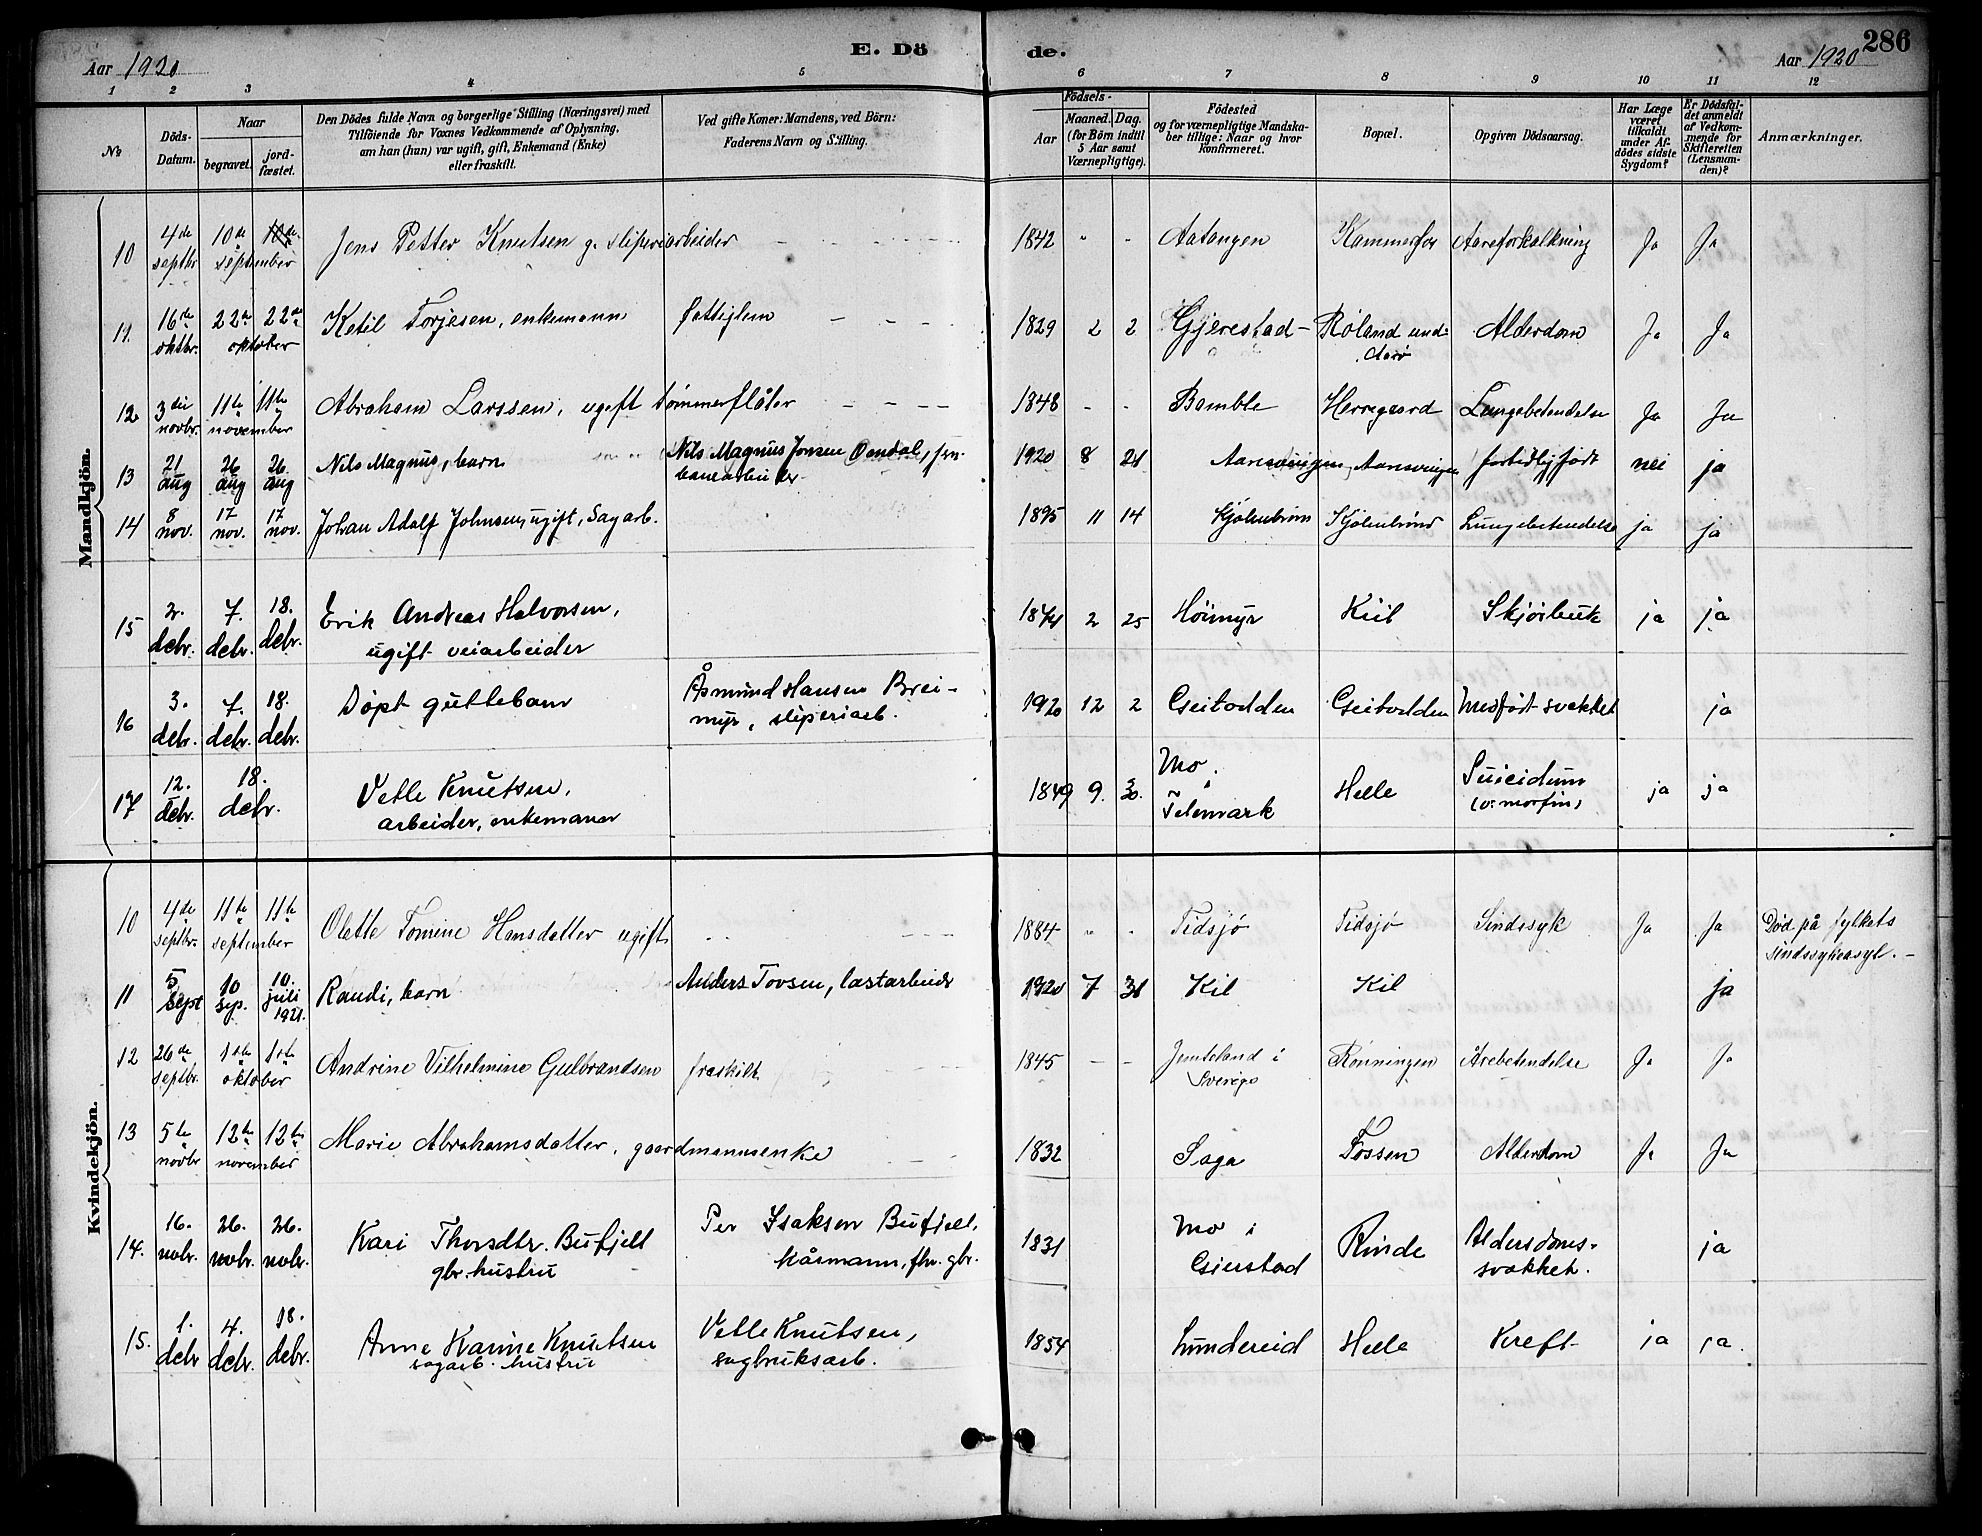 E. Döde.
286
Aar 1920
Aar 1920
1 2 3 4 5 6 7 8 9 10 11 12
№
Döds-Datum.
Naar
begravet.
jordfæstet.
Den Dödes fulde Navn og borgerlige Stilling (Næringsvei) med
Tilföiende for Voxnes Vedkommende af Oplysning,
om han (hun) var ugift, gift, Enkemand (Enke)
eller fraskilt.
Ved gifte Koner: Mandens, ved Börn:
Faderens Navn og Stilling.
Födsels-
Aar
Maaned. Dag.
(for Börn indtil 5 Aar samt Værnepligtige).
Födested
og for værnepligtige Mandskaber tillige: Naar og hvor Konfirmeret.
Bopæl.
Opgiven Dödsaarsag.
Har Læge været tilkaldt under Afdödes sidste Sygdom?
Er Dödsfaldet anmeldt af Vedkommende for Skifteretten (Lensmanden)?
Anmærkninger.
Mandkjön.
10 4de septbr 10de september Jens Petter Knutsen g. sliperiarbeider 1842 Aatangen Kammerfos Aareforkalkning Ja Ja
11. 16de oktbr. 22de 22de oktober Ketil Torjesen, enkemann Fattiglem 1829 2 2 Gjerestad Röland und. Alderdom Ja Ja
12 3die novbr. 11te 11te november Abraham Larssen, ugift tömmerflåter 1848 Bamble Herregaard Lungebetendelse Ja Ja
13 21 aug 26 aug 26. aug Nils Magnus, barn Nils Magnus Jonsen, jernbanearbeider 1920 8 Aarsvingen Aarsvingen fortidlig født nei ja
14 8 nov. 17 nov. 17 nov. Johan Adolf Johnsen, ugift, Sagarb. 1895 11 14 Kjölenbrönn Kjölenbrönd Lungebetendelse ja ja
15 2. debr. 7. debr. 18. debr. Erik Andreas Halvorsen, ugift veiarbeider 2 25 Höimyr Kiil Skjörbuk ja ja
16 3. debr. 7. debr. 18. debr. Döpt guttebarn Åsmund Hansen Breimyr, sliperiarb. 1920 12 2 Geitodden Geitodden Medfödt svakhet ja
17 12. debr. 18. debr. Vetle Knutsen, arbeider, enkemann 1849 9. 30. Mo i Telemark Helle Suicidum (v. morfin) ja ja
Kvindekjön.
10 4de septbr. 11te 11te september Olette Tomine Hansdatter ugift 1884 Tidsjö Tidsjö Sindssyk Ja Ja Död på fylkets Sindssykeasyl.
11 5 Sept 10 sep. 10. juli 1921. Randi, barn Anders Tovsen, lastarbeider 1920 7 31 Kil Kil ja
12 26de septbr. 1ste 1ste oktober Andrine Vilhelmine Gulbrandsen fraskilt 1845 Jemteland i Sverige Rönningen Årebetendelse Ja Ja
13 5te novbr 12te 12te november Marie Abrahamsdatter, gaardmannsenke 1832 Saga Fossen Alderdom Ja Ja
14. 16. novbr. 26. novbr. 26. novbr. Kari Thorsdtr. Bufjell gbr. hustru Per Isaksen Bufjell, kårmann, fhv. gbr. 1831 Mo i Gjerstad Rinde Aldersdoms-svakhet. ja
15. 1. debr 4. debr. 18. debr. Anne Karine Knutsen sagarb. hustru Vetle Knutsen, sagbruksarb. 1854 Lundereid Helle Kreft ja ja.